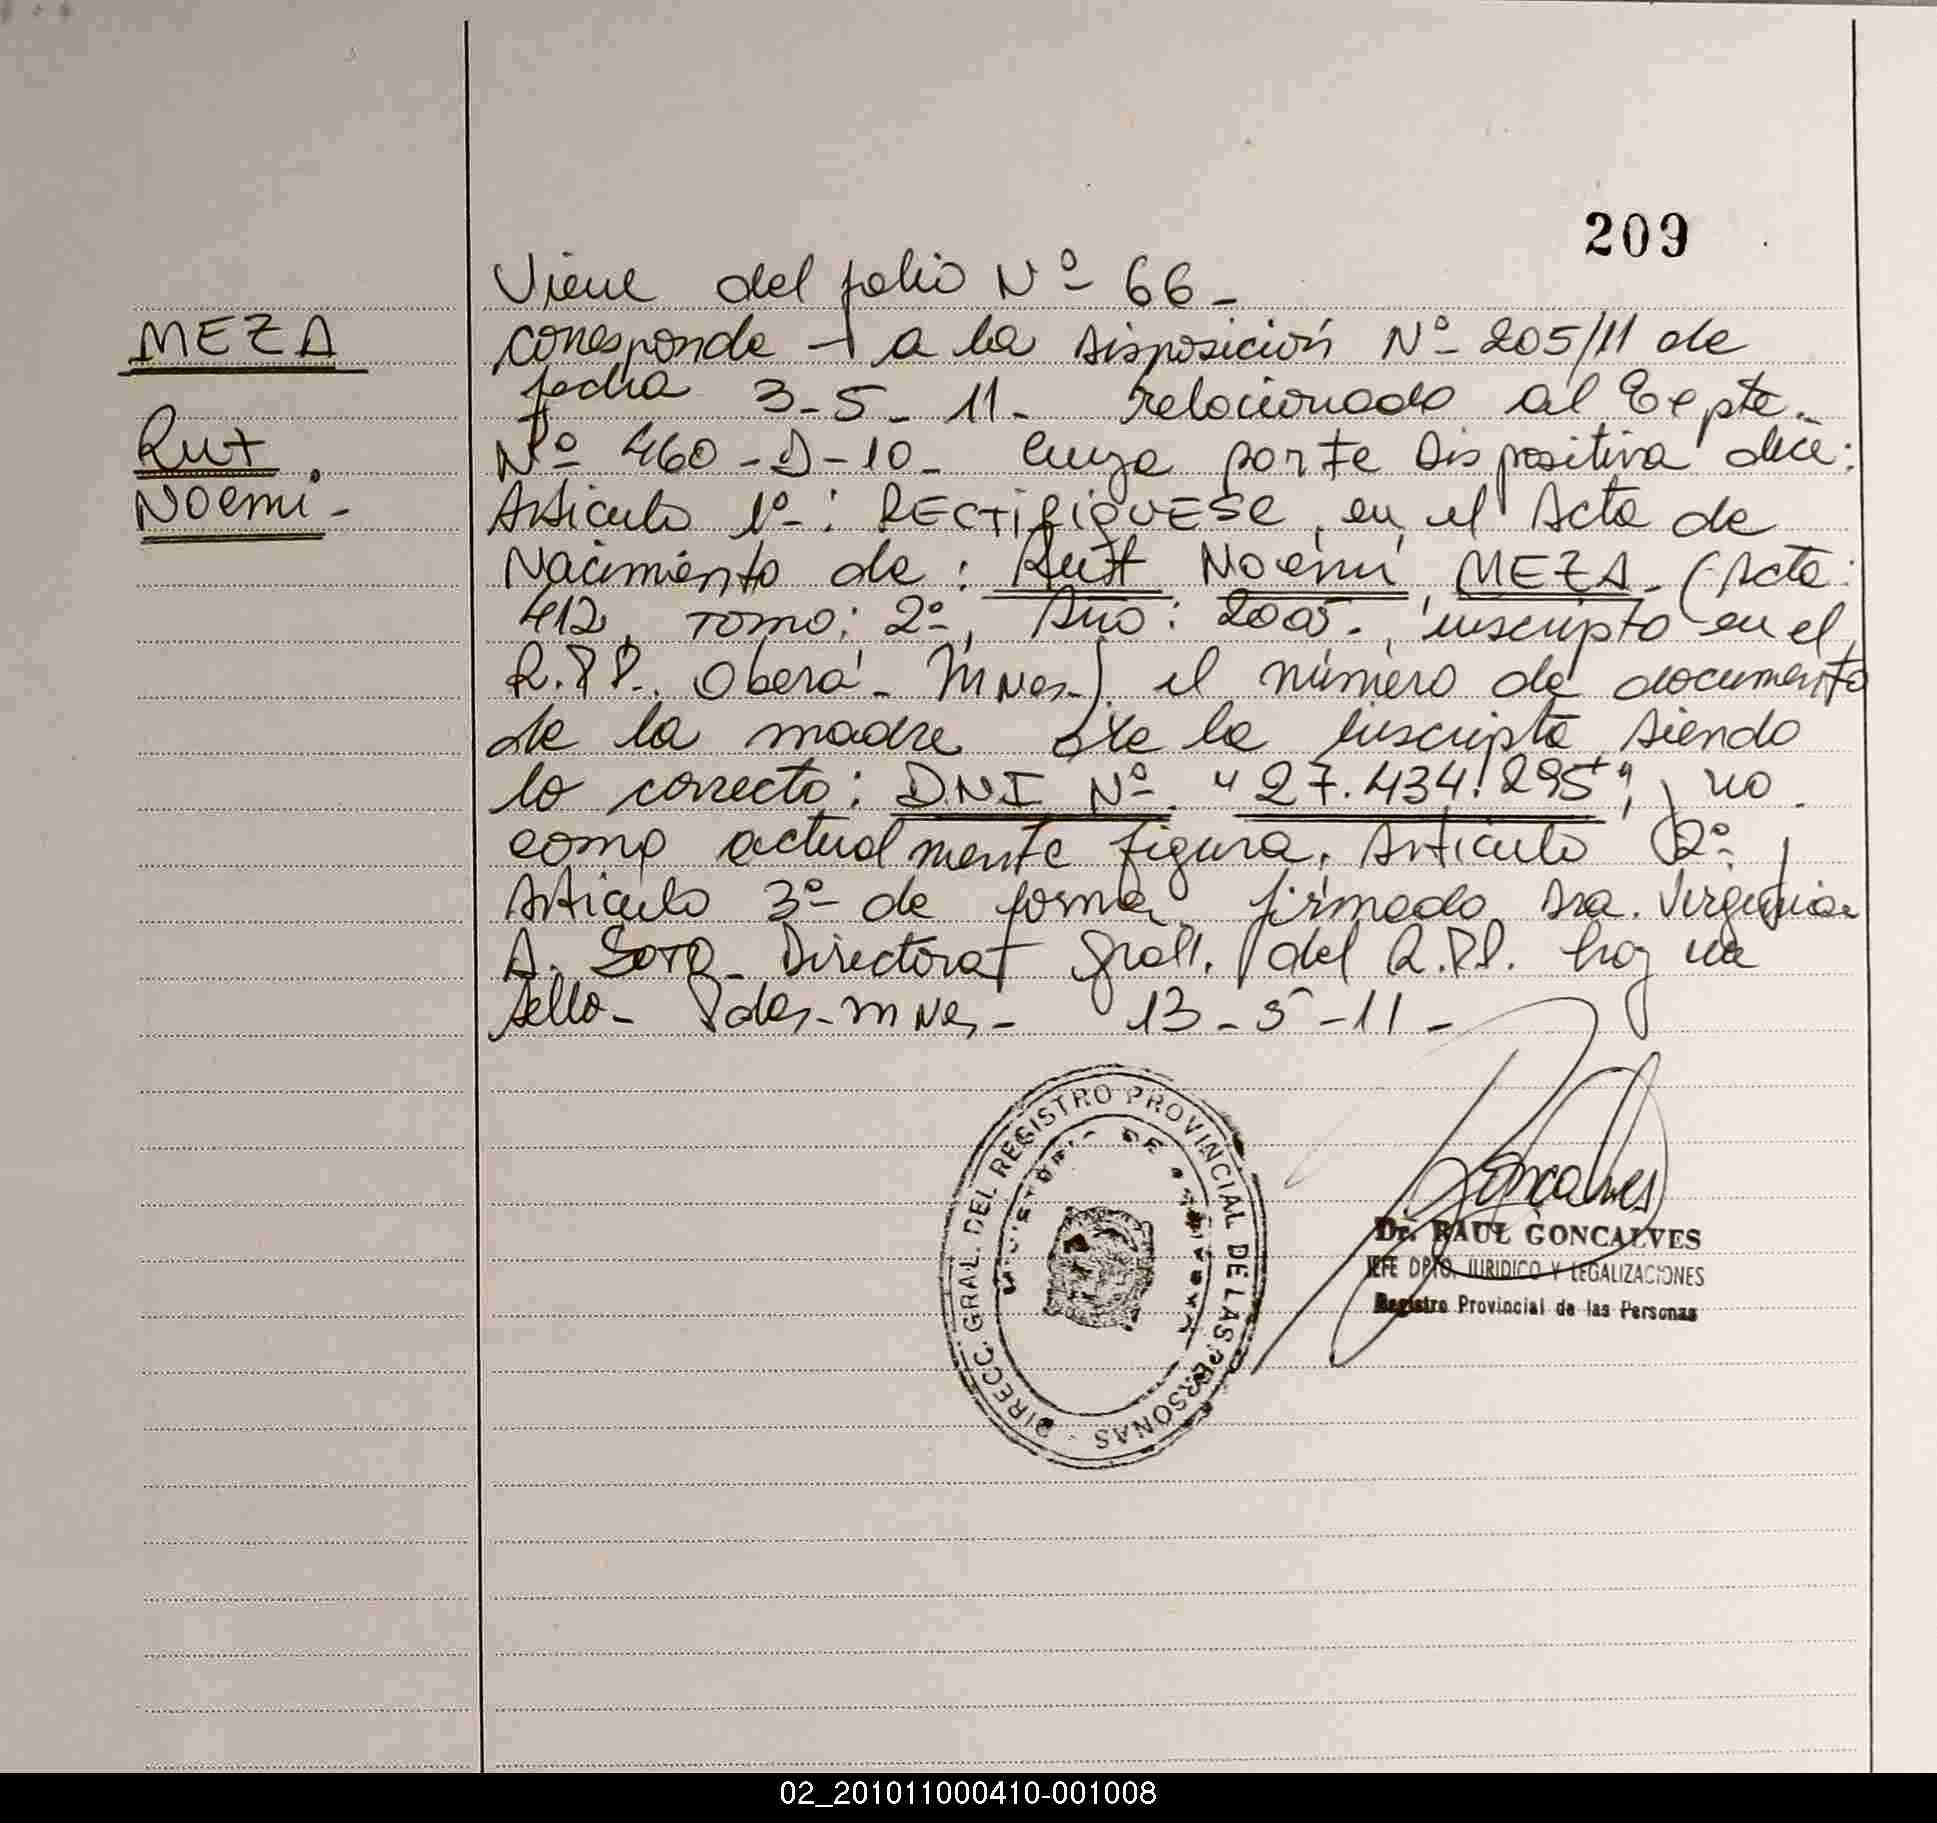 209
Viene del folio Nº 66-
MEZA
corresponde a la disposición Nº 205/11 de
fecha 3-5-11- relacionado al Expte.
Rut
Nº 460-D-10- cuya parte dispositiva dice:
Noemi-
Artículo 1º-: RECTIFIQUESE, en el Acta de
Nacimiento de: Rut Noemi MEZA-(Acta:
412, Tomo: 2º, Año: 2005-, inscripto en el
R.P.P. Oberá- Mnes-) el número de documento
de la madre de la inscripta, siendo
lo correcto: DNI Nº "27.434.295", y no
como actualmente figura. Artículo 2º y
Artículo 3º de forma, firmado, Dra. Virginia
A. Soto- Directora Gral. del R.P.P. hay un
sello- Pdas-Mnes- 13-5-11-
DIRECC. GRAL. DEL REGISTRO PROVINCIAL DE LAS PERSONAS
Goncalves
Dr. RAUL GONCALVES
JEFE DPTO. JURIDICO Y LEGALIZACIONES
Registro Provincial de las Personas
02_201011000410-001008